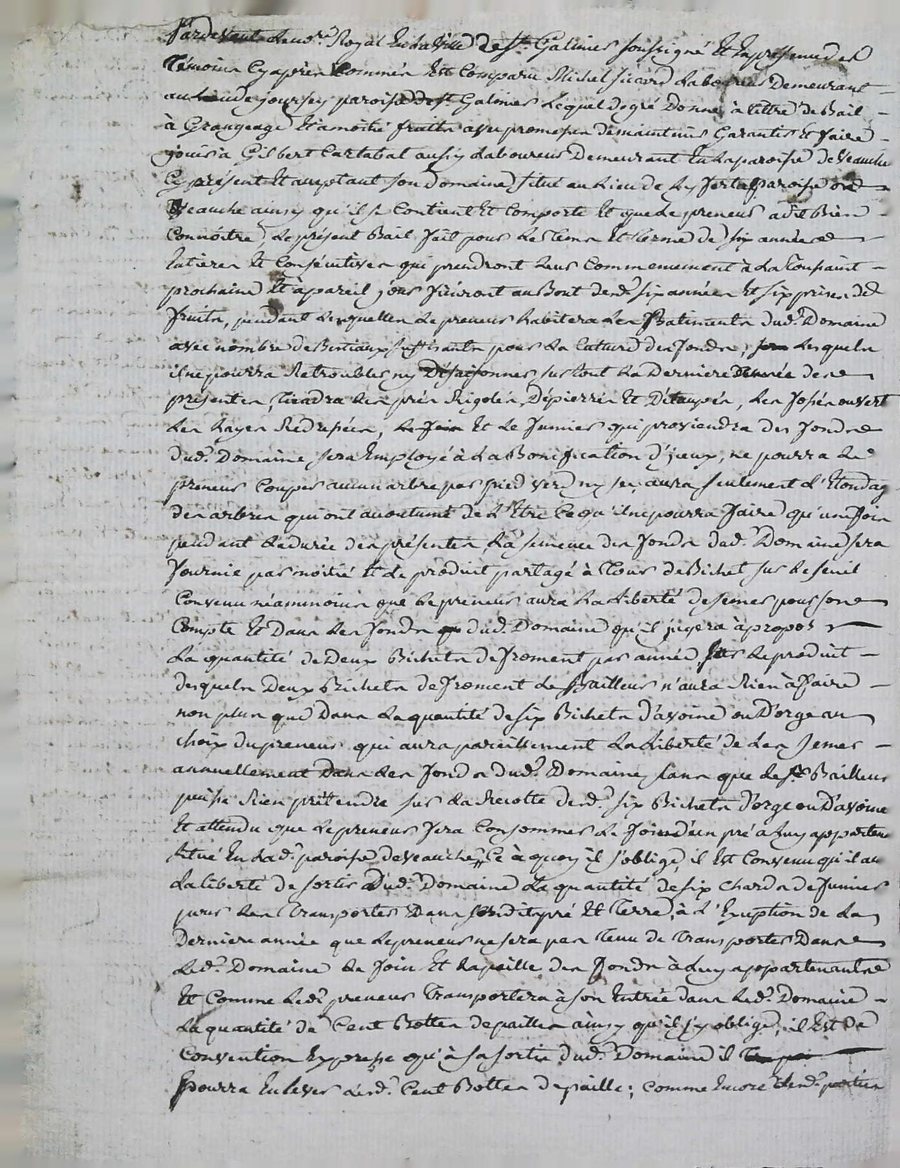 Pardevant le no.re Royal En la ville de St. Galmier soussigné Et En présence des
témoins Cy après nommés Est Comparu Michel sicard Laboureur Demeurant
au lieu de paroisse de St. Galmier Lequel de gré Donne à tittre de Bail
à Grangeage Et à moitié fruits avec promesse de maintenir Garantir Et faire
jouir à Gilbert Cartabal aussy Laboureur Demeurant En la paroisse de Veauche
Cy présent Et acceptant son Domaine situé au Lieu de paroisse de
Veauche ainsy qu'il se Contient Et Comporte Et que Le preneur a dit Bien
Connoitre, Le présent Bail fait pour Le tems Et terme de six années
Entieres Et Consécutives qui prendront Leur Commencement à La toussaint
prochaine Et à pareil jour finiront au Bout desd. six années Et six prises de
fruits, pendant Lesquelles Le preneur habitera Les Batiments dud. Domaine
avec nombre de Bestiaux suffisants pour La Culture des fonds, Lesquels
il ne pourra Retroubler ny Désaisonner sur tout La Derniere année des
présentes, tiendra Les prés Rigolés, Dépierrés Et Détaupés, Les fossés ouverts
Les hayes Redressées, Le foin Et Le fumier qui proviendra des fonds
dud. Domaine sera Employé à La Bonification d'iceux, ne pourra Le
preneur Couper aucun arbre par pied verd ny sec, aura seulement L'Elondage
des arbres qui ont accoutumé de L'Etre Ce qu'il ne pourra faire qu'une fois
pendant La durée des présentes, La semence des fonds dud. Domaine sera
fournie par moitié Et Le produit partagé à tour de Bichet sur Le seuil
Convenu néammoins que Le preneur aura La Liberté de semer pour son
Compte Et Dans Les fonds dud. Domaine qu'il jugera à propos
La quantité de Deux Bichets de froment par année Le produit
desquels Deux Bichets de froment Le Bailleur n'aura Rien à faire
non plus que Dans La quantité de six Bichets d'avoine ou D'orge au
choix du preneur qui aura pareillement La Liberté de Les semer
annuellement Dans Les fonds dud. Domaine, sans que Led. Bailleur
puisse Rien prétendre sur La Recolte desd. six Bichets d'orge ou D'avoine
Et attendu que Le preneur fera Consommer Le foin d'un pré à Luy appartenant
situé En Lad. paroisse de Veauche, Ce à quoy il s'oblige, il Est Convenu qu'il aura
La Liberté de sortir Dud. Domaine La quantité de six Chards de fumier
pour Les transporter Dans pré Et Terre, à L'Exception de La
Derniere année que Le preneur ne sera pas tenu de transporter Dans
Led. Domaine Le foin Et La paille des fonds à Luy appartenants
Et Comme Led. preneur transportera à son Entrée dans Led. Domaine
La quantité de Cent Bottes de pailles ainsy qu'il s'y oblige, il Est de
Convention Expresse qu'à sa sortie dud. Domaine il
pourra Enlever Lesd. Cent Bottes de paille; Comme Encore Lesd. parties